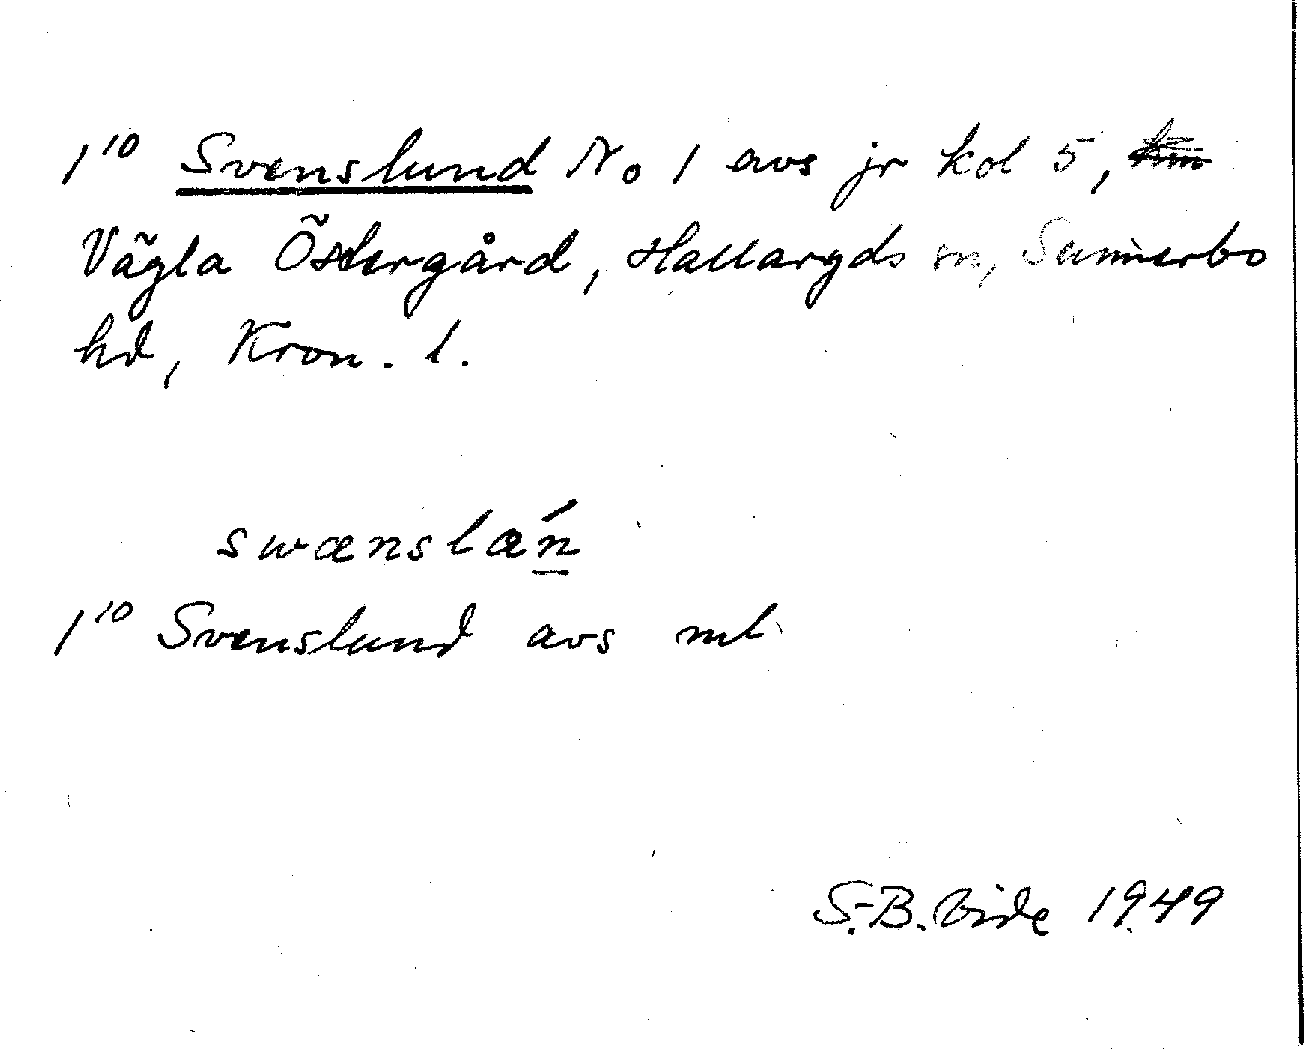 1¹⁰ Svenslund No 1 avs jr kol 5,
Vägla Östergård, Hallaryds sn, Sunnerbo
hd, Kron. l.
swænslǽn
1¹⁰ Svenslund avs ml
S.-B. Vide 1949